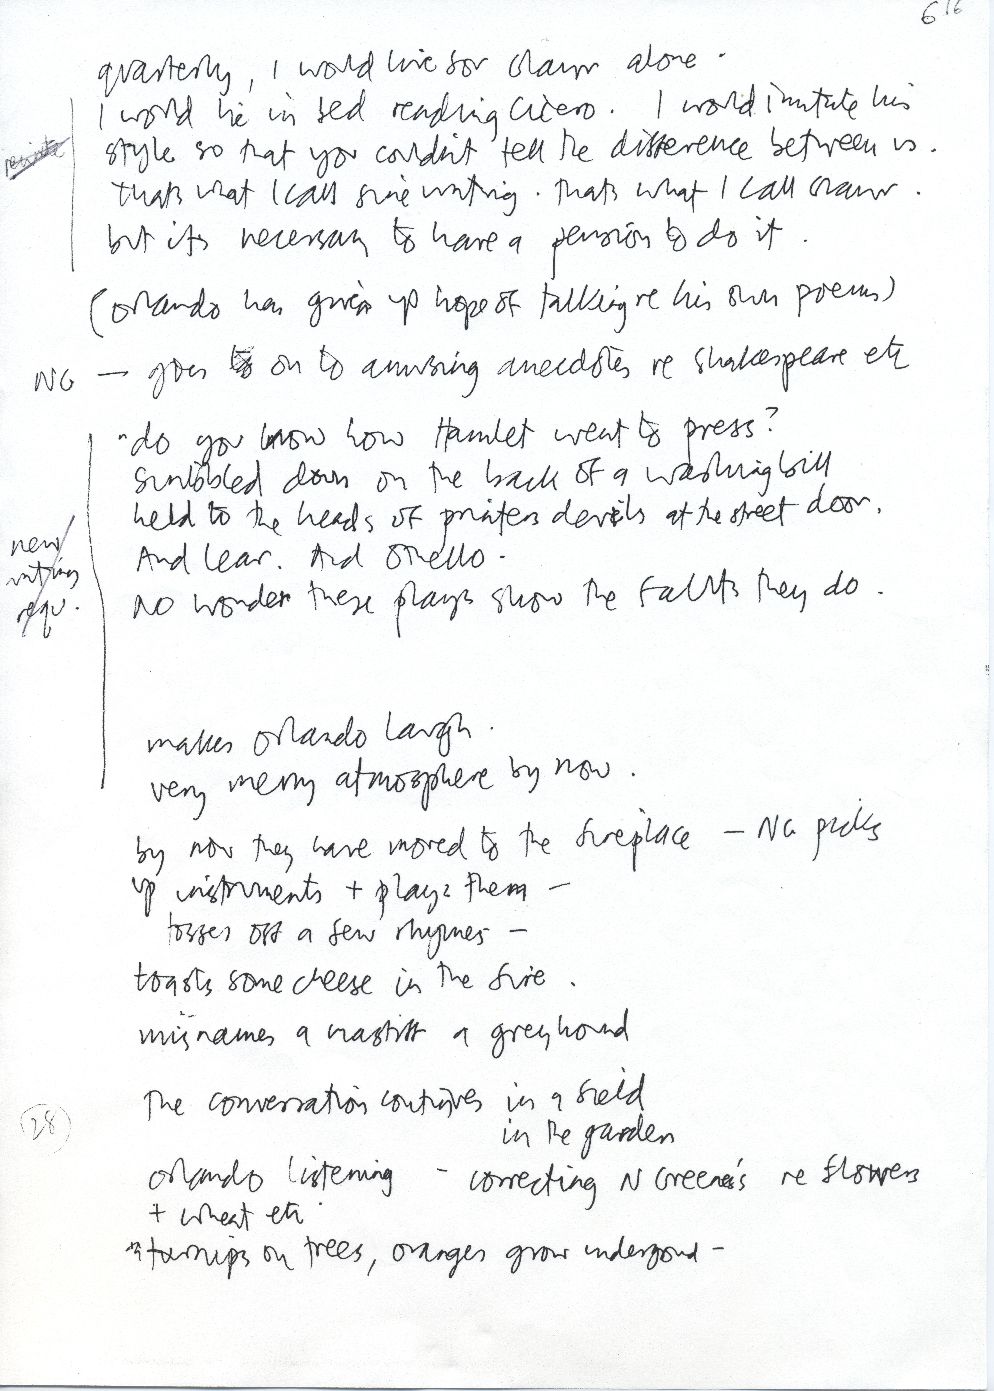 6 16
quarterly, I would live for Glawr alone.
I would lie in bed reading Cicero. I would imitate his
style so that you couldn't tell the difference between us.
thats what I call fine writing. thats what I call Glawr.
but its necessary to have a pension to do it.
(Orlando has given up hope of talking re his own poems)
NG — goes to on to amusing anecdotes re Shakespeare etc
"do you know how Hamlet went to press?
Scribbled down on the back of a washing bill
held to the heads of printers devils at the street door.
And Lear. And Othello.
No wonder these plays show the faults they do.
new
writing
requ.
makes Orlando laugh.
very merry atmosphere by now.
by now they have moved to the fireplace — NG picks
up instruments + plays them —
tosses off a few rhymes —
toasts some cheese in the fire.
misnames a mastiff a greyhound
The conversation continues in a field
in the garden
28
Orlando listening - correcting N Greene's re flowers
+ wheat etc
turnips on trees, oranges grow underground -